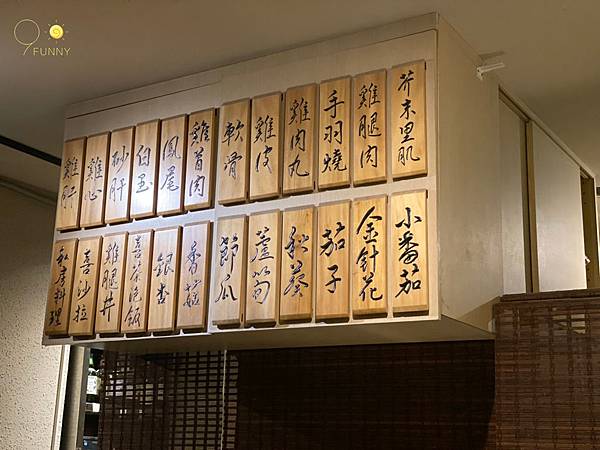 9
FUNNY
芥末里肌
雞腿肉
手羽燒
雞肉丸
雞皮
軟骨
雞首肉
鳳尾
白玉
砂肝
雞心
雞肝
小番茄
金針花
茄子
秋葵
蘆筍
節瓜
香菇
銀杏
喜茶泡飯
雞腿丼
喜沙拉
私房料理